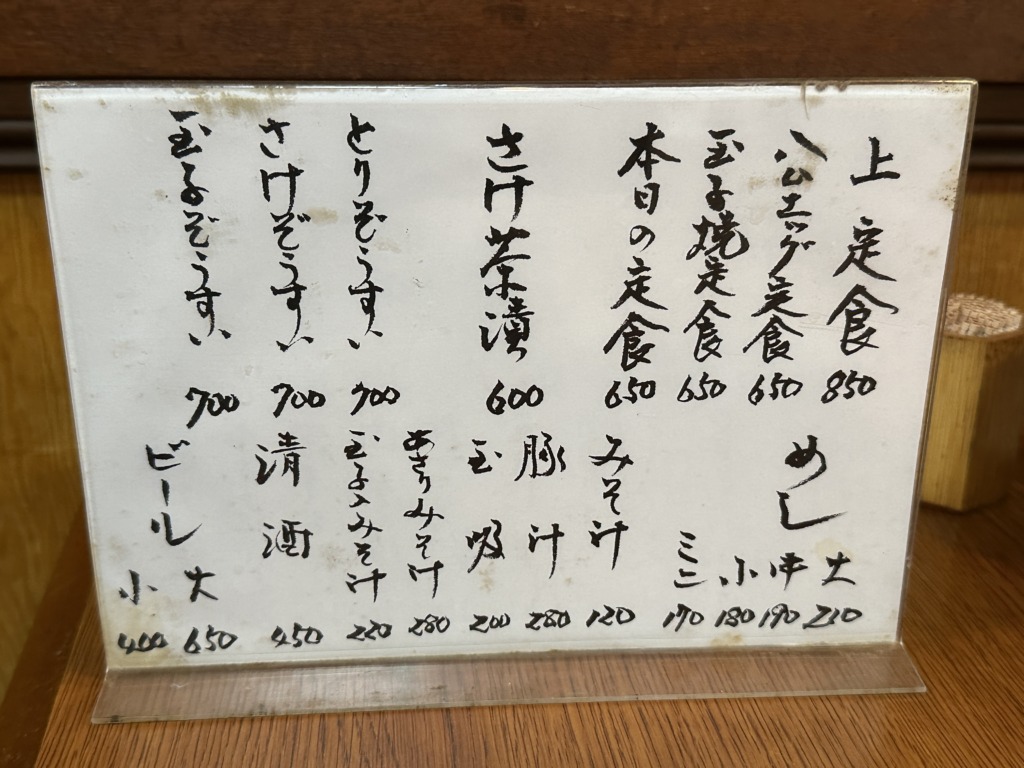 上定食 850
ハムエッグ定食 650
玉子焼定食 650
本日の定食 650
さけ茶漬 600
とりぞうすい 700
さけぞうすい 700
玉子ぞうすい 700
めし
大 210
中 190
小 180
ミニ 170
みそ汁 120
豚汁 280
玉吸 200
あさりみそ汁 280
玉子入みそ汁 220
清酒 450
ビール
大 650
小 400